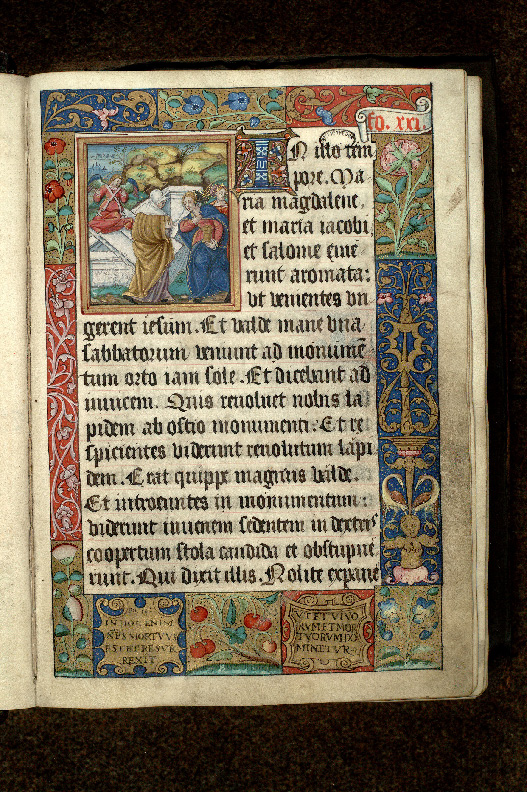 fo. xxi.
IN illo tem
pore. Ma
ria magdalene.
et maria iacobi.
et salome eme
runt aromata:
vt venientes vn
gerent iesum. Et valde mane vna
sabbatorum veniunt ad monumē
tum orto iam sole. Et dicebant ad
inuicem. Quis reuoluet nobis la
pidem ab ostio monumenti: Et re
spicientes viderunt reuolutum lapi
dem. Erat quippe magnus valde.
Et introeuntes in monumentum:
viderunt iuuenem sedentem in dextris
coopertum stola candida et obstupue
runt. Qui dixit illis. Nolite expaue
IN HOC ENIM
XPS MORTVVS
EST ET RESVR
REXIT
VT ET VIVO
RVM ET MOR
TVORVM DO
MINETVR